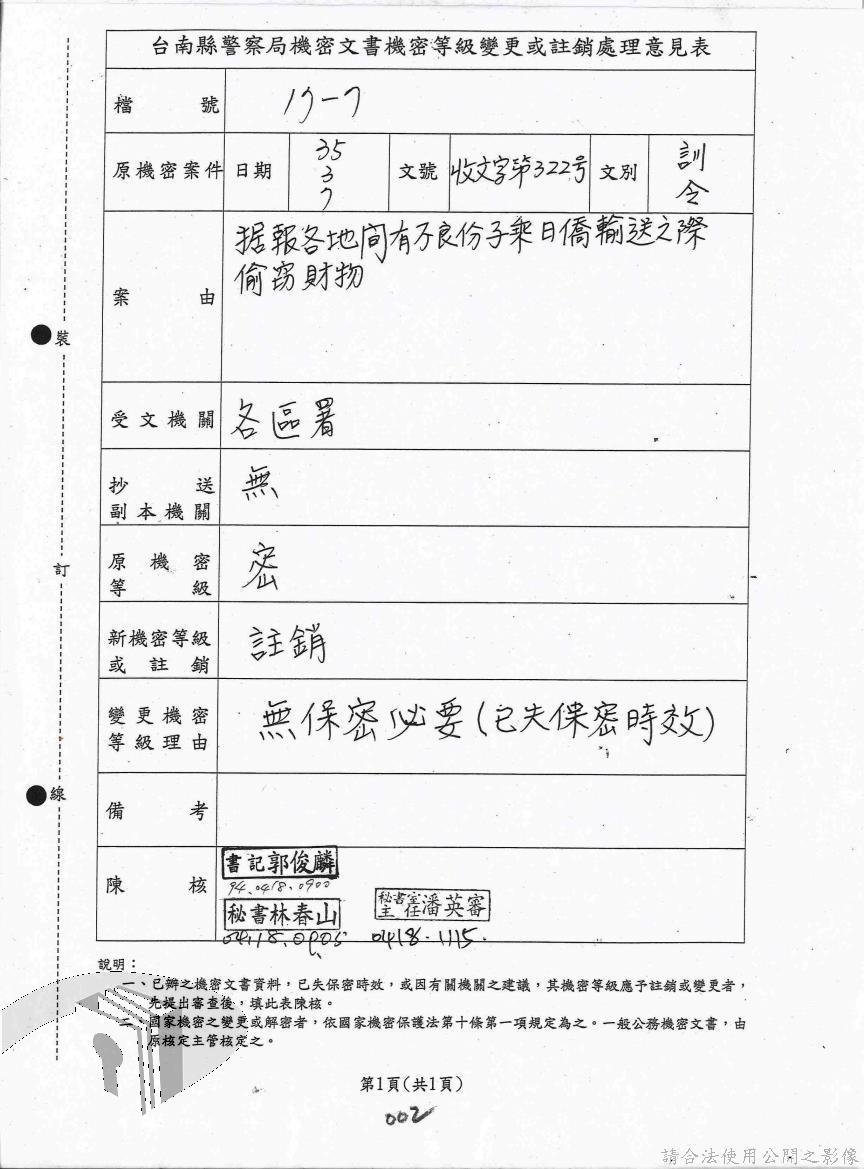 台南縣警察局機密文書機密等級變更或註銷處理意見表
檔號 17-7
原機密案件 日期 35 3 7 文號 收文字第322号 文別 訓令
案由 据報各地间有不良份子乘日僑輸送之際
偷窃財物
受文機關 各區署
抄送副本機關 無
原機密等級 密
新機密等級或註銷 註銷
變更機密等級理由 無保密必要(已失保密時效)
備考
陳核
書記郭俊麟
94.0418.0900
秘書林春山
0418.0905
秘書室主任潘英審
0418.1115.
說明:
一、已辦之機密文書資料,已失保密時效,或因有關機關之建議,其機密等級應予註銷或變更者,
先提出審查後,填此表陳核。
二、國家機密之變更或解密者,依國家機密保護法第十條第一項規定為之。一般公務機密文書,由
原核定主管核定之。
第1頁(共1頁)
002
裝
訂
線
請合法使用公開之影像